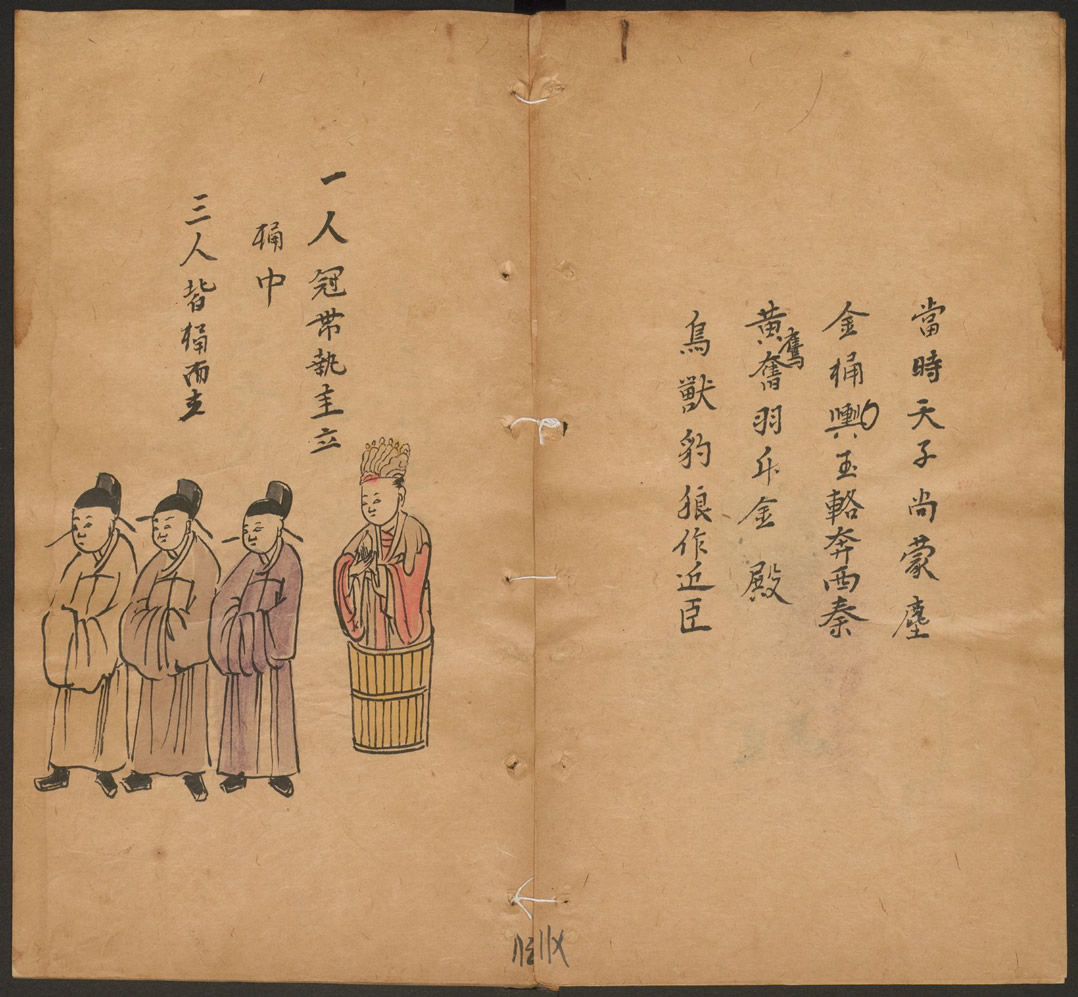 當時天子尚蒙塵
金桶輿玉輅奔西秦
黃鷹奮羽升金殿
鳥獸豹狼作近臣
一人冠帶執圭立
桶中
三人皆桶而立